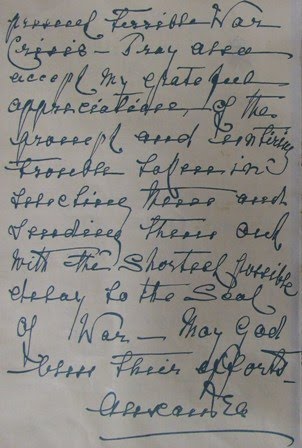 present terrible War
Crisis – Pray also
accept my grateful
appreciation, of the
prompt and untiring
trouble taken in
selecting them and
sending them out
with the shortest possible
delay to the Seat
of War – May God
bless their efforts –
Alexandra